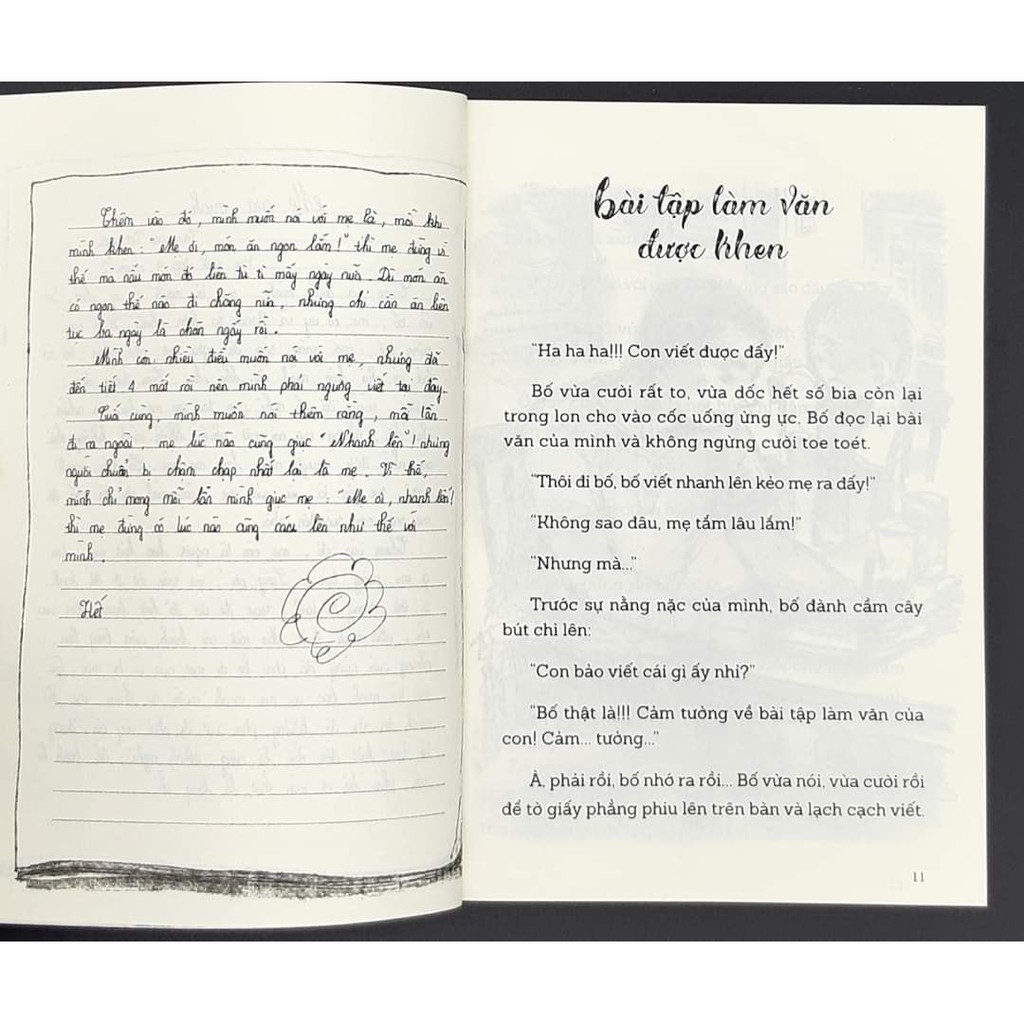 Thêm vào đó, mình muốn nói với mẹ là, mỗi khi
mình khen: "Mẹ ơi, món ăn ngon lắm!" thì mẹ đừng vì
thế mà nấu món đó liên tù tì mấy ngày nữa. Dù món ăn
có ngon thế nào đi chăng nữa, nhưng chỉ cần ăn liên
tục ba ngày là chán ngấy rồi.
Mình còn nhiều điều muốn nói với mẹ, nhưng đã
đến tiết 4 mất rồi nên mình phải ngừng viết tại đây.
Cuối cùng, mình muốn nói thêm rằng, mỗi lần
đi ra ngoài, mẹ lúc nào cũng giục "Nhanh lên"! nhưng
người chuẩn bị chậm chạp nhất lại là mẹ. Vì thế,
mình chỉ mong mỗi lần mình giục mẹ: "Mẹ ơi, nhanh lên"!
thì mẹ đừng có lúc nào cũng cáu lên như thế với
mình.
Hết
bài tập làm văn
được khen
"Ha ha ha!!! Con viết được đấy!"
Bố vừa cười rất to, vừa dốc hết số bia còn lại
trong lon cho vào cốc uống ừng ực. Bố đọc lại bài
văn của mình và không ngừng cười toe toét.
"Thôi đi bố, bố viết nhanh lên kẻo mẹ ra đấy!"
"Không sao đâu, mẹ tắm lâu lắm!"
"Nhưng mà..."
Trước sự nằng nặc của mình, bố đành cầm cây
bút chì lên:
"Con bảo viết cái gì ấy nhỉ?"
"Bố thật là!!! Cảm tưởng về bài tập làm văn của
con! Cảm... tưởng..."
À, phải rồi, bố nhớ ra rồi... Bố vừa nói, vừa cười rồi
để tờ giấy phẳng phiu lên trên bàn và lạch cạch viết.
11